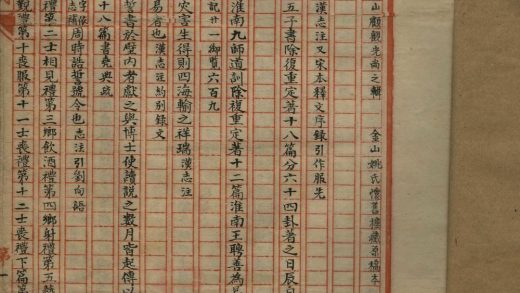 山顧觀光尚之輯 金山姚氏懷舊樓藏原稿本
漢志注又宋本釋文序録引作服先
五子書除復重定著十八篇分六十四卦著之日辰
淮南九師道訓除複重定著十二篇淮南王聘善為
記廿一御覽六百九
災言生得則四海輸之祥瑞漢志注
易者也漢志注約別録文
誓於壁內者獻之與博士使讀說之數月皆起傳以
十八篇書堯典疏
周時誥誓號令也志注引劉向語
禮第二士相見禮第三鄉飲酒禮第四鄉射禮第五
覲禮第十喪服第十一士喪禮第十二士喪禮下篇